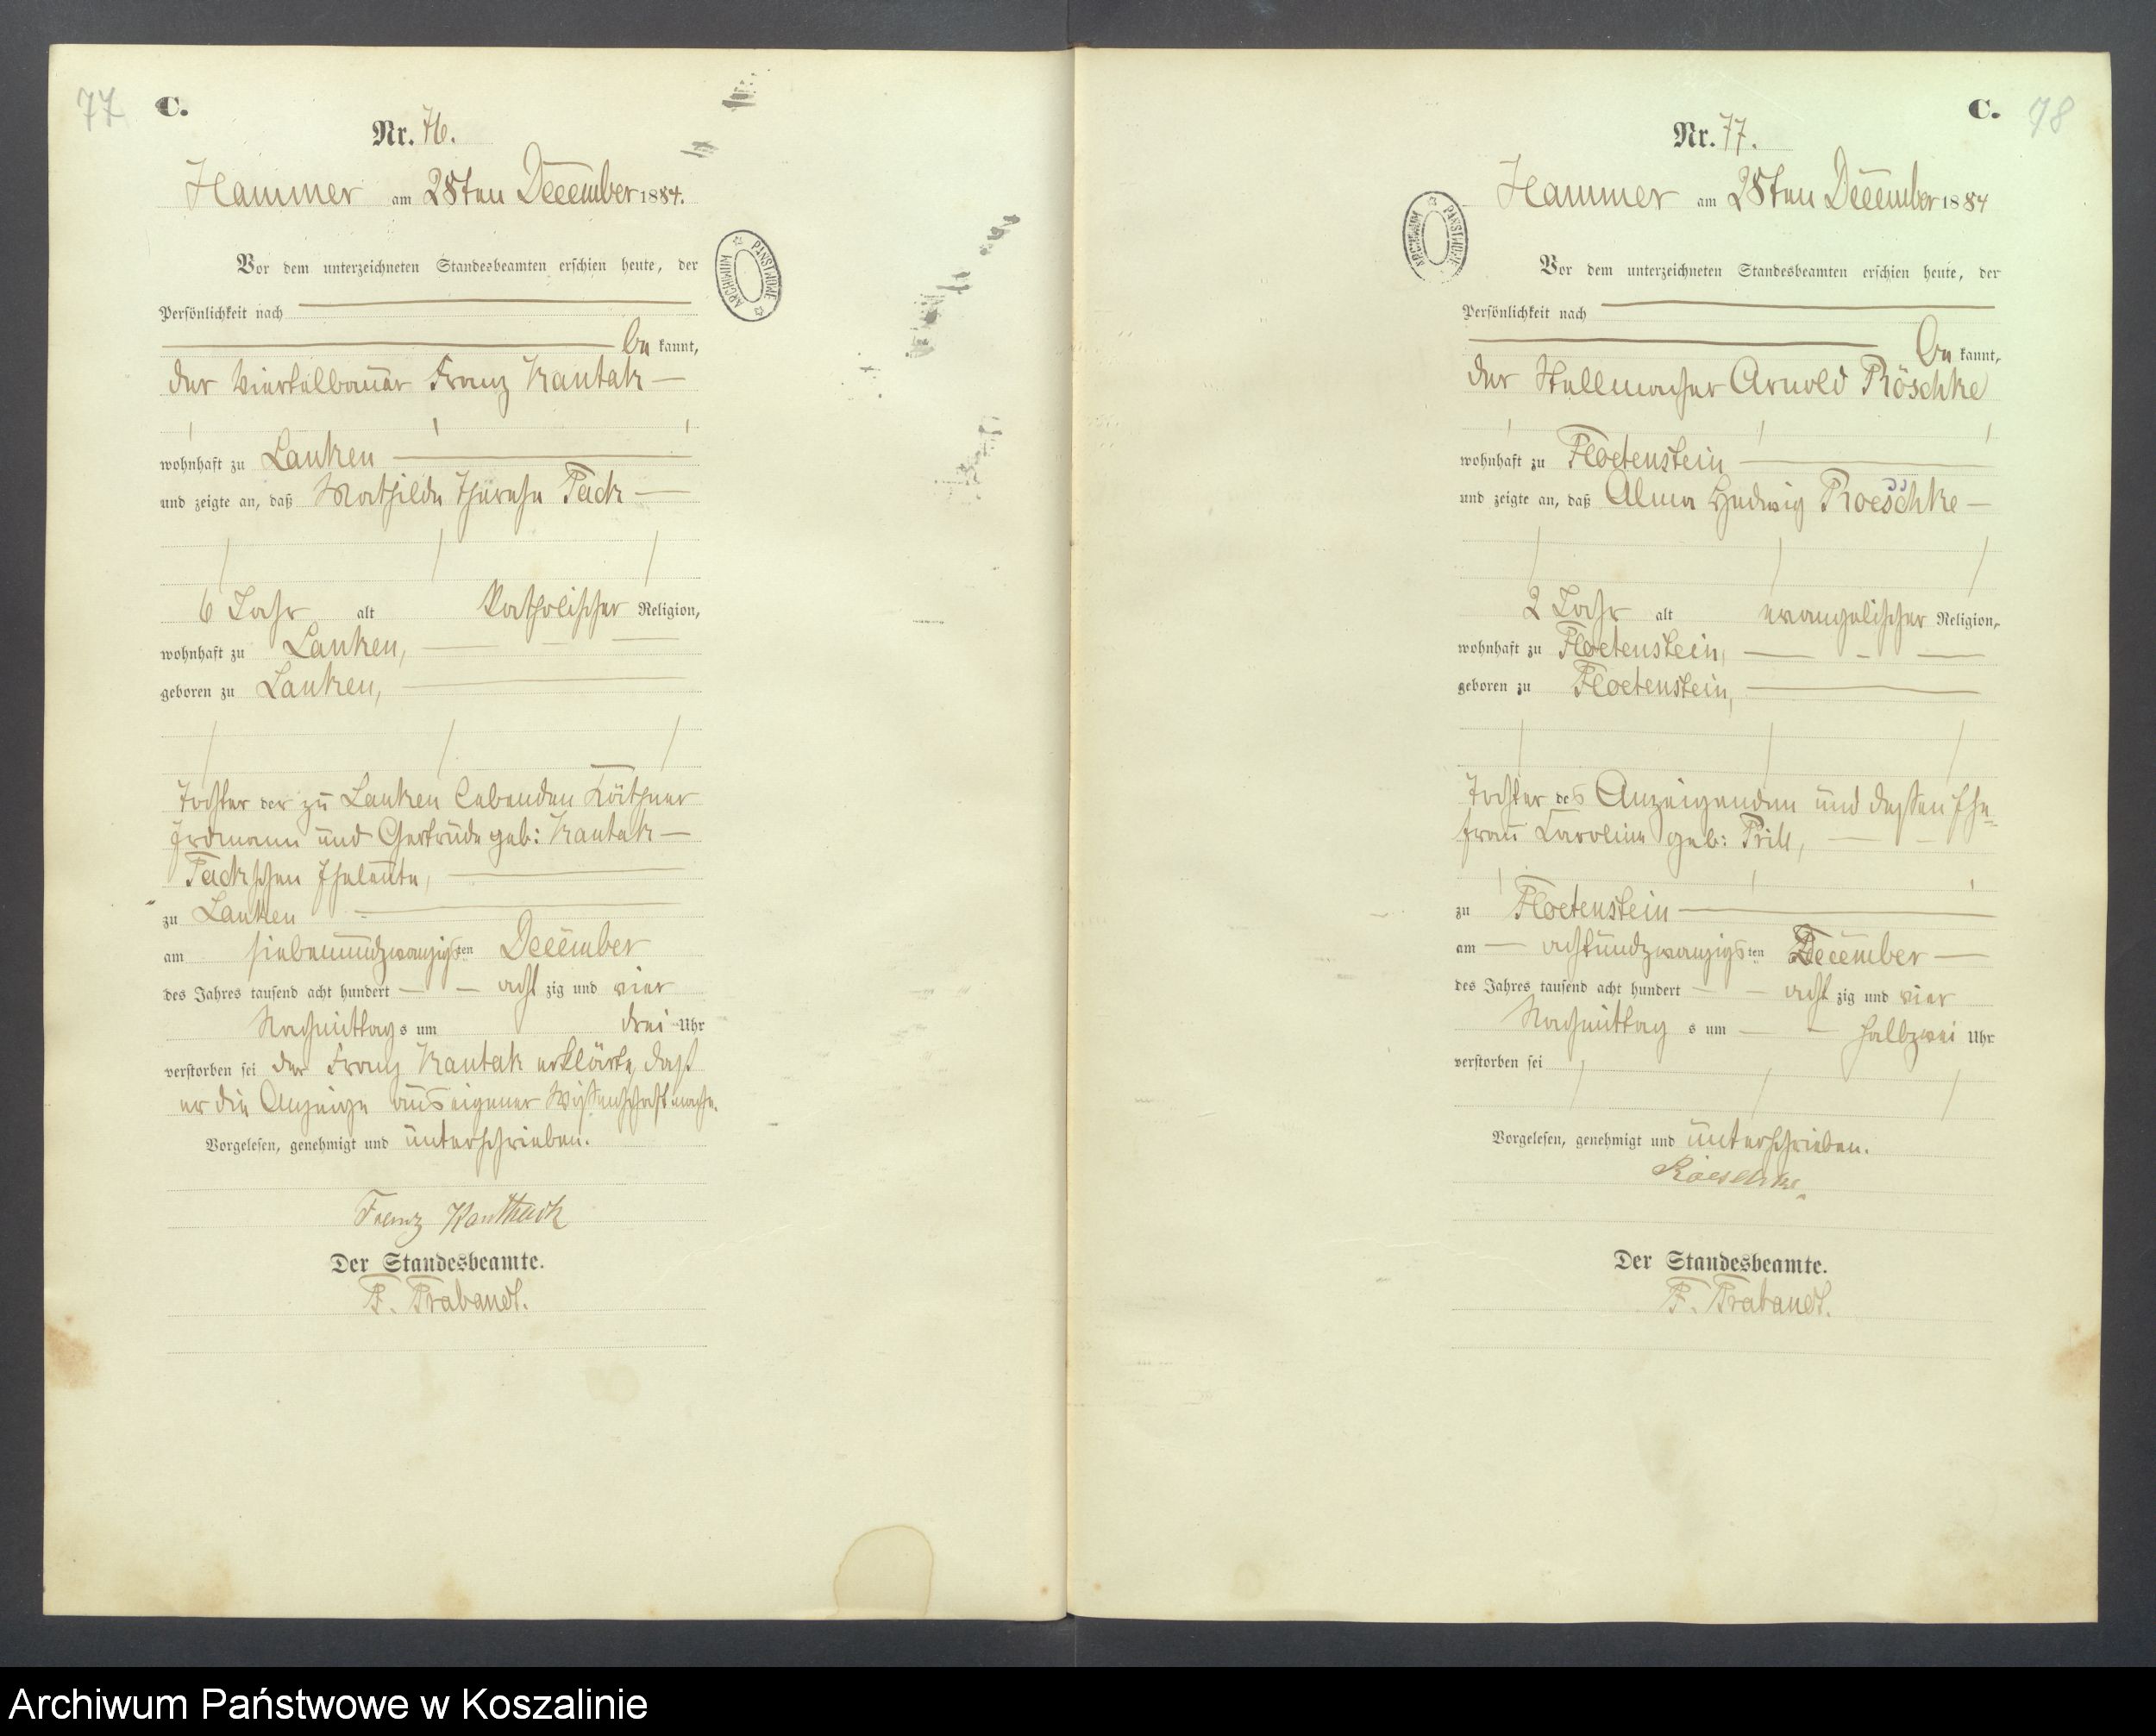 77
C.
Nr. 76.
Hammer am 28ten December 1884.
Vor dem unterzeichneten Standesbeamten erschien heute, der
Persönlichkeit nach
be kannt,
der Viertelbauer Franz Kantak
wohnhaft zu Lanken
und zeigte an, daß Mathilde Therese Pack
6 Jahr alt katholischer Religion,
wohnhaft zu Lanken,
geboren zu Lanken,
Tochter der zu Lanken lebenden Käthner
Erdmann und Gertrude geb: Kantak
Pack'schen Eheleute,
zu Lanken
am siebenundzwanzigsten December
des Jahres tausend acht hundert acht zig und vier
Nachmittags um drei Uhr
verstorben sei der Franz Kantak erklärte, daß
er die Anzeige aus eigener Wissenschaft mache.
Vorgelesen, genehmigt und unterschrieben.
Franz Kanthack
Der Standesbeamte.
F. Brabandt.
ARCHIWUM PAŃSTWOWE
C.
78
Nr. 77.
Hammer am 28ten December 1884
Vor dem unterzeichneten Standesbeamten erschien heute, der
Persönlichkeit nach
be kannt,
der Stellmacher Arnold Röschke
wohnhaft zu Floetenstein
und zeigte an, daß Alma Hedwig Roeschke
2 Jahr alt evangelischer Religion,
wohnhaft zu Floetenstein,
geboren zu Floetenstein,
Tochter des Anzeigenden und dessen Ehe-
frau Caroline geb: Prill,
zu Floetenstein
am achtundzwanzigsten December
des Jahres tausend acht hundert acht zig und vier
Nachmittag s um halbzwei Uhr
verstorben sei
Vorgelesen, genehmigt und unterschrieben.
Roeschke
Der Standesbeamte.
F. Brabandt.
ARCHIWUM PAŃSTWOWE
Archiwum Państwowe w Koszalinie